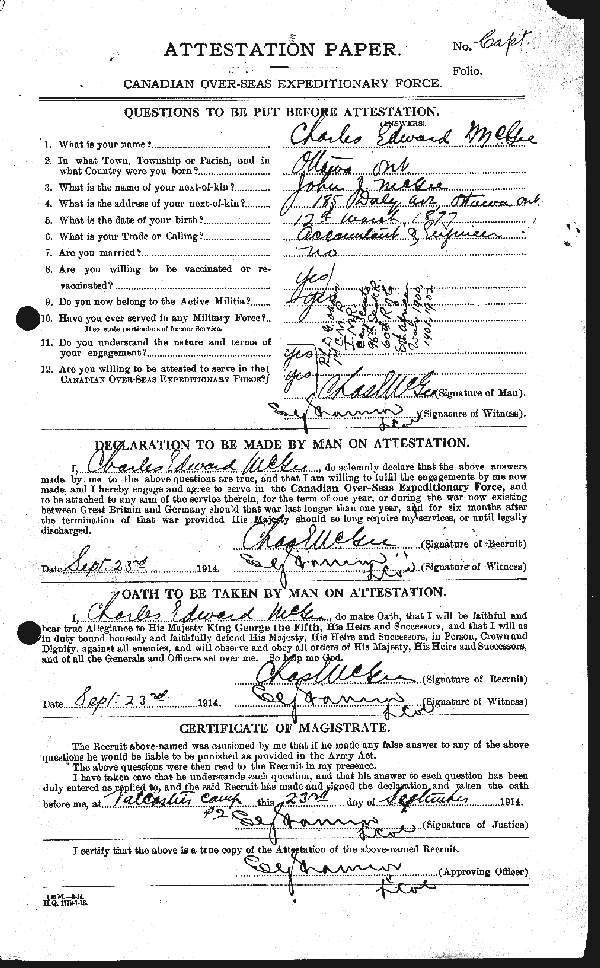 ATTESTATION PAPER.
No. Capt.
Folio.
CANADIAN OVER-SEAS EXPEDITIONARY FORCE.
QUESTIONS TO BE PUT BEFORE ATTESTATION.
(ANSWERS)
1. What is your name? Charles Edward McGee
2. In what Town, Township or Parish, and in
what Country were you born? Ottawa Ont
3. What is the name of your next-of-kin? John J. McGee
4. What is the address of your next-of-kin? 185 Daly Ave Ottawa Ont
5. What is the date of your birth? 12th March 1877
6. What is your Trade or Calling? Accountant &
7. Are you married? No
8. Are you willing to be vaccinated or re-
vaccinated? Yes
9. Do you now belong to the Active Militia? Yes
10. Have you ever served in any Military Force?
If so, state particulars of former Service.
11. Do you understand the nature and terms of
your engagement? Yes
12. Are you willing to be attested to serve in the
CANADIAN OVER-SEAS EXPEDITIONARY FORCE? Yes
Chas E McGee (Signature of Man).
(Signature of Witness).
Lt Col
DECLARATION TO BE MADE BY MAN ON ATTESTATION.
I, Charles Edward McGee, do solemnly declare that the above answers
made by me to the above questions are true, and that I am willing to fulfil the engagements by me now
made, and I hereby engage and agree to serve in the Canadian Over-Seas Expeditionary Force, and
to be attached to any arm of the service therein, for the term of one year, or during the war now existing
between Great Britain and Germany should that war last longer than one year, and for six months after
the termination of that war provided His Majesty should so long require my services, or until legally
discharged.
Chas E McGee (Signature of Recruit)
Date Sept. 23rd 1914. (Signature of Witness)
Lt Col
OATH TO BE TAKEN BY MAN ON ATTESTATION.
I, Charles Edward McGee, do make Oath, that I will be faithful and
bear true Allegiance to His Majesty King George the Fifth, His Heirs and Successors, and that I will as
in duty bound honestly and faithfully defend His Majesty, His Heirs and Successors, in Person, Crown and
Dignity, against all enemies, and will observe and obey all orders of His Majesty, His Heirs and Successors,
and of all the Generals and Officers set over me. So help me God.
Chas E McGee (Signature of Recruit)
Date Sept. 23rd 1914. (Signature of Witness)
Lt Col
CERTIFICATE OF MAGISTRATE.
The Recruit above-named was cautioned by me that if he made any false answer to any of the above
questions he would be liable to be punished as provided in the Army Act.
The above questions were then read to the Recruit in my presence.
I have taken care that he understands each question, and that his answer to each question has been
duly entered as replied to, and the said Recruit has made and signed the declaration and taken the oath
before me, at Valcartier Camp this 23rd day of September 1914.
P2 (Signature of Justice)
Lt Col
I certify that the above is a true copy of the Attestation of the above-named Recruit.
(Approving Officer)
Lt Col